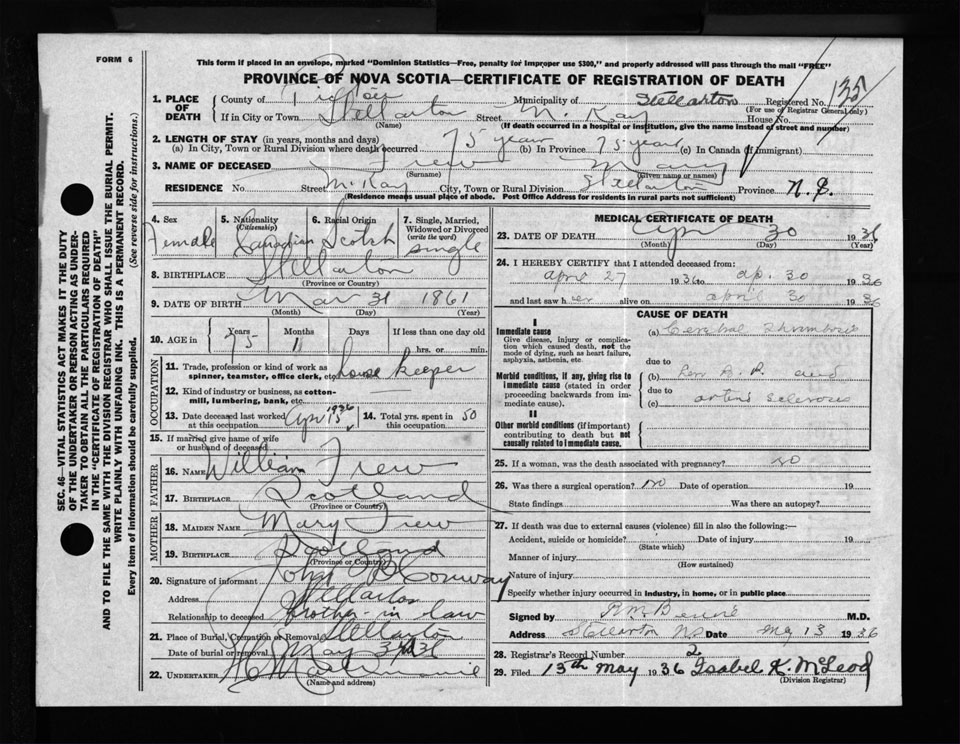 FORM 6
This form if placed in an envelope, marked "Dominion Statistics—Free, penalty for improper use $300," and properly addressed will pass through the mail "FREE"
PROVINCE OF NOVA SCOTIA—CERTIFICATE OF REGISTRATION OF DEATH
1. PLACE OF DEATH County of Pictou Municipality of Stellarton Registered No.
(For use of Registrar General only)
If in City or Town Stellarton Street McKay House No.
(Name) (If death occurred in a hospital or institution, give the name instead of street and number)
2. LENGTH OF STAY (in years, months and days)
(a) In City, Town or Rural Division where death occurred 75 years (b) In Province 75 years (c) In Canada (if immigrant)
3. NAME OF DECEASED Frew Mary
(Surname) (Given name or names)
RESIDENCE No. Street McKay City, Town or Rural Division Stellarton Province N.S.
(Residence means usual place of abode. Post Office Address for residents in rural parts not sufficient)
4. Sex Female
5. Nationality (Citizenship) Canadian
6. Racial Origin Scotch
7. Single, Married, Widowed or Divorced (write the word) single
8. BIRTHPLACE Stellarton
(Province or Country)
9. DATE OF BIRTH Mar 31 1861
(Month) (Day) (Year)
10. AGE in Years 75 Months 1 Days If less than one day old
hrs. or min.
OCCUPATION
11. Trade, profession or kind of work as spinner, teamster, office clerk, etc. house keeper
12. Kind of industry or business, as cotton-mill, lumbering, bank, etc.
13. Date deceased last worked at this occupation Apr 15 1936
14. Total yrs. spent in this occupation 50
15. If married give name of wife or husband of deceased
FATHER
16. NAME William Frew
17. BIRTHPLACE Scotland
(Province or Country)
MOTHER
18. MAIDEN NAME Mary Frew
19. BIRTHPLACE Scotland
(Province or Country)
20. Signature of informant John B Conway
Address Stellarton
Relationship to deceased brother-in law
21. Place of Burial, Cremation or Removal Stellarton
Date of burial or removal May
22. UNDERTAKER
(Name and address)
MEDICAL CERTIFICATE OF DEATH
23. DATE OF DEATH Apr 30 1936
(Month) (Day) (Year)
24. I HEREBY CERTIFY that I attended deceased from:
april 27 1936 to ap. 30 1936
and last saw her alive on april 30 1936
CAUSE OF DEATH
I
Immediate cause
Give disease, injury or complication which caused death, not the mode of dying, such as heart failure, asphyxia, asthenia, etc.
(a) Cerebral Thrombosis
due to
Morbid conditions, if any, giving rise to immediate cause (stated in order proceeding backwards from immediate cause).
(b) B. P. and
due to
(c) arterio sclerosis
II
Other morbid conditions (if important) contributing to death but not causally related to immediate cause.
25. If a woman, was the death associated with pregnancy? no
26. Was there a surgical operation? no Date of operation 19
State findings Was there an autopsy?
27. If death was due to external causes (violence) fill in also the following:—
Accident, suicide or homicide? Date of injury 19
(State which)
Manner of injury
(How sustained)
Nature of injury
Specify whether injury occurred in industry, in home, or in public place
Signed by M.D.
Address Stellarton NS Date May 13 1936
28. Registrar's Record Number 2
29. Filed 13th May 1936 Isabel K. McLeod
(Division Registrar)
SEC. 46—VITAL STATISTICS ACT MAKES IT THE DUTY OF THE UNDERTAKER OR PERSON ACTING AS UNDERTAKER TO OBTAIN ALL THE PARTICULARS REQUIRED IN THE "CERTIFICATE OF REGISTRATION OF DEATH"
AND TO FILE THE SAME WITH THE DIVISION REGISTRAR WHO SHALL ISSUE THE BURIAL PERMIT.
WRITE PLAINLY WITH UNFADING INK. THIS IS A PERMANENT RECORD.
Every item of information should be carefully supplied. (See reverse side for instructions.)